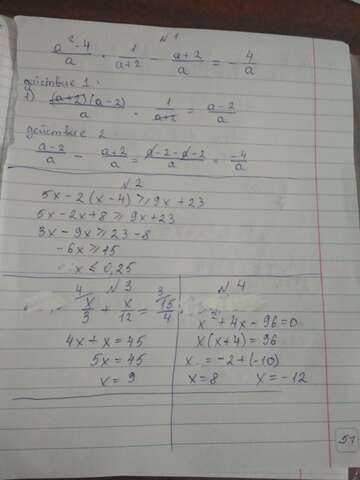 №1
a²-4/a · 1/a+2 - a+2/a = - 4/a
действие 1:
1) (a+2)(a-2)/a · 1/a+2 = a-2/a
действие 2
a-2/a - a+2/a = a-2-a-2/a = -4/a
№2
5x-2(x-4) ≥ 9x+23
5x-2x+8 ≥ 9x+23
3x-9x ≥ 23-8
-6x ≥ 15
x ≤ 0,25
№3
4/ x/3 + x/12 = 3/ 15/4
4x+x=45
5x=45
x=9
№4
x²+4x-96=0
x(x+4)=96
x = -2+(-10)
x=8 x=-12
51